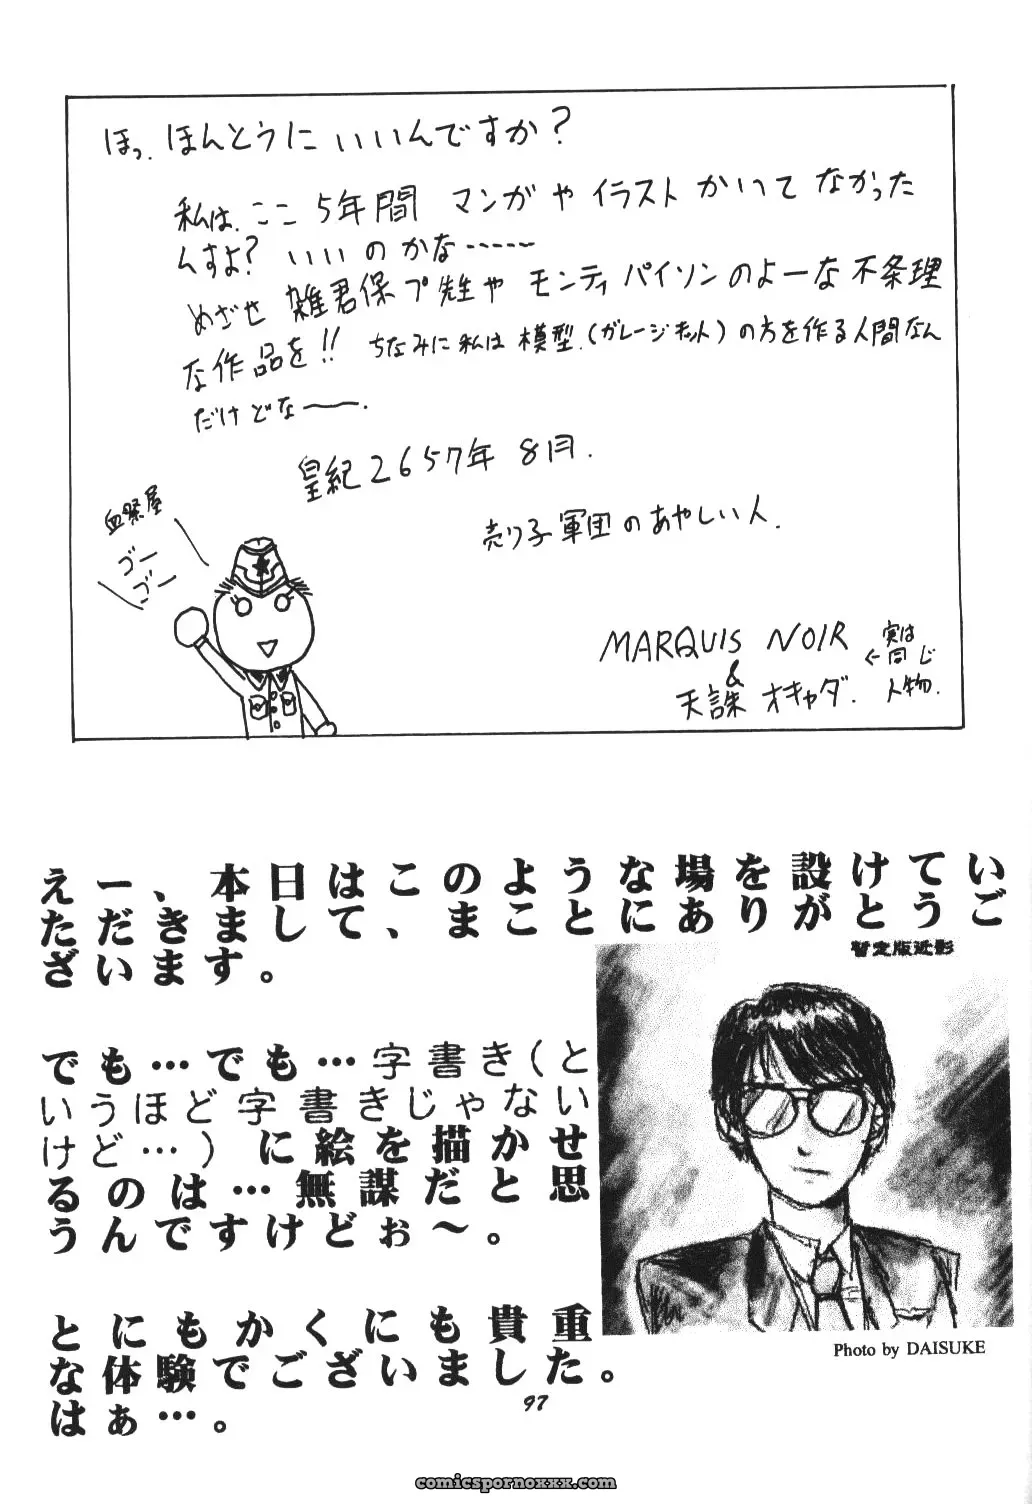 ほっ、ほんとうに いいんですか？
私は、ここ 5年間 マンガや イラスト かいて なかった
んすよ？ いいのかな……
めざせ 雑君保プ先生や モンティパイソンのよーな不条理
な作品を!! ちなみに私は 模型（ガレージキット）の方を作る人間なん
だけどなー。
皇紀2657年 8月.
売り子軍団のあやしい人.
血祭屋
ゴー
ゴー
MARQUIS NOIR
&
天誅 オキャダ.
実は
←同じ
人物.
えー、本日はこのような場を設けてい
ただきまして、まことにありがとうご
ざいます。
暫定版近影
でも…でも…字書き（と
いうほど字書きじゃない
けど…）に絵を描かせ
るのは…無謀だと思
うんですけどぉ～。
とにもかくにも貴重
な体験でございました。
はぁ…。
Photo by DAISUKE
97
comicspornoxxx.com